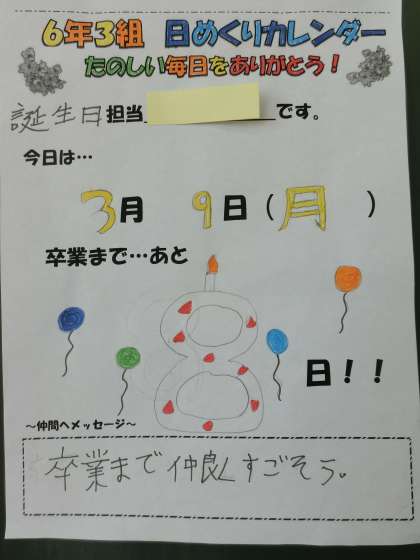 6年3組 日めくりカレンダー
たのしい毎日をありがとう！
誕生日担当 です。
今日は…
3月 9日（月 ）
卒業まで…あと
8
日！！
～仲間へメッセージ～
卒業まで仲良くすごそう。